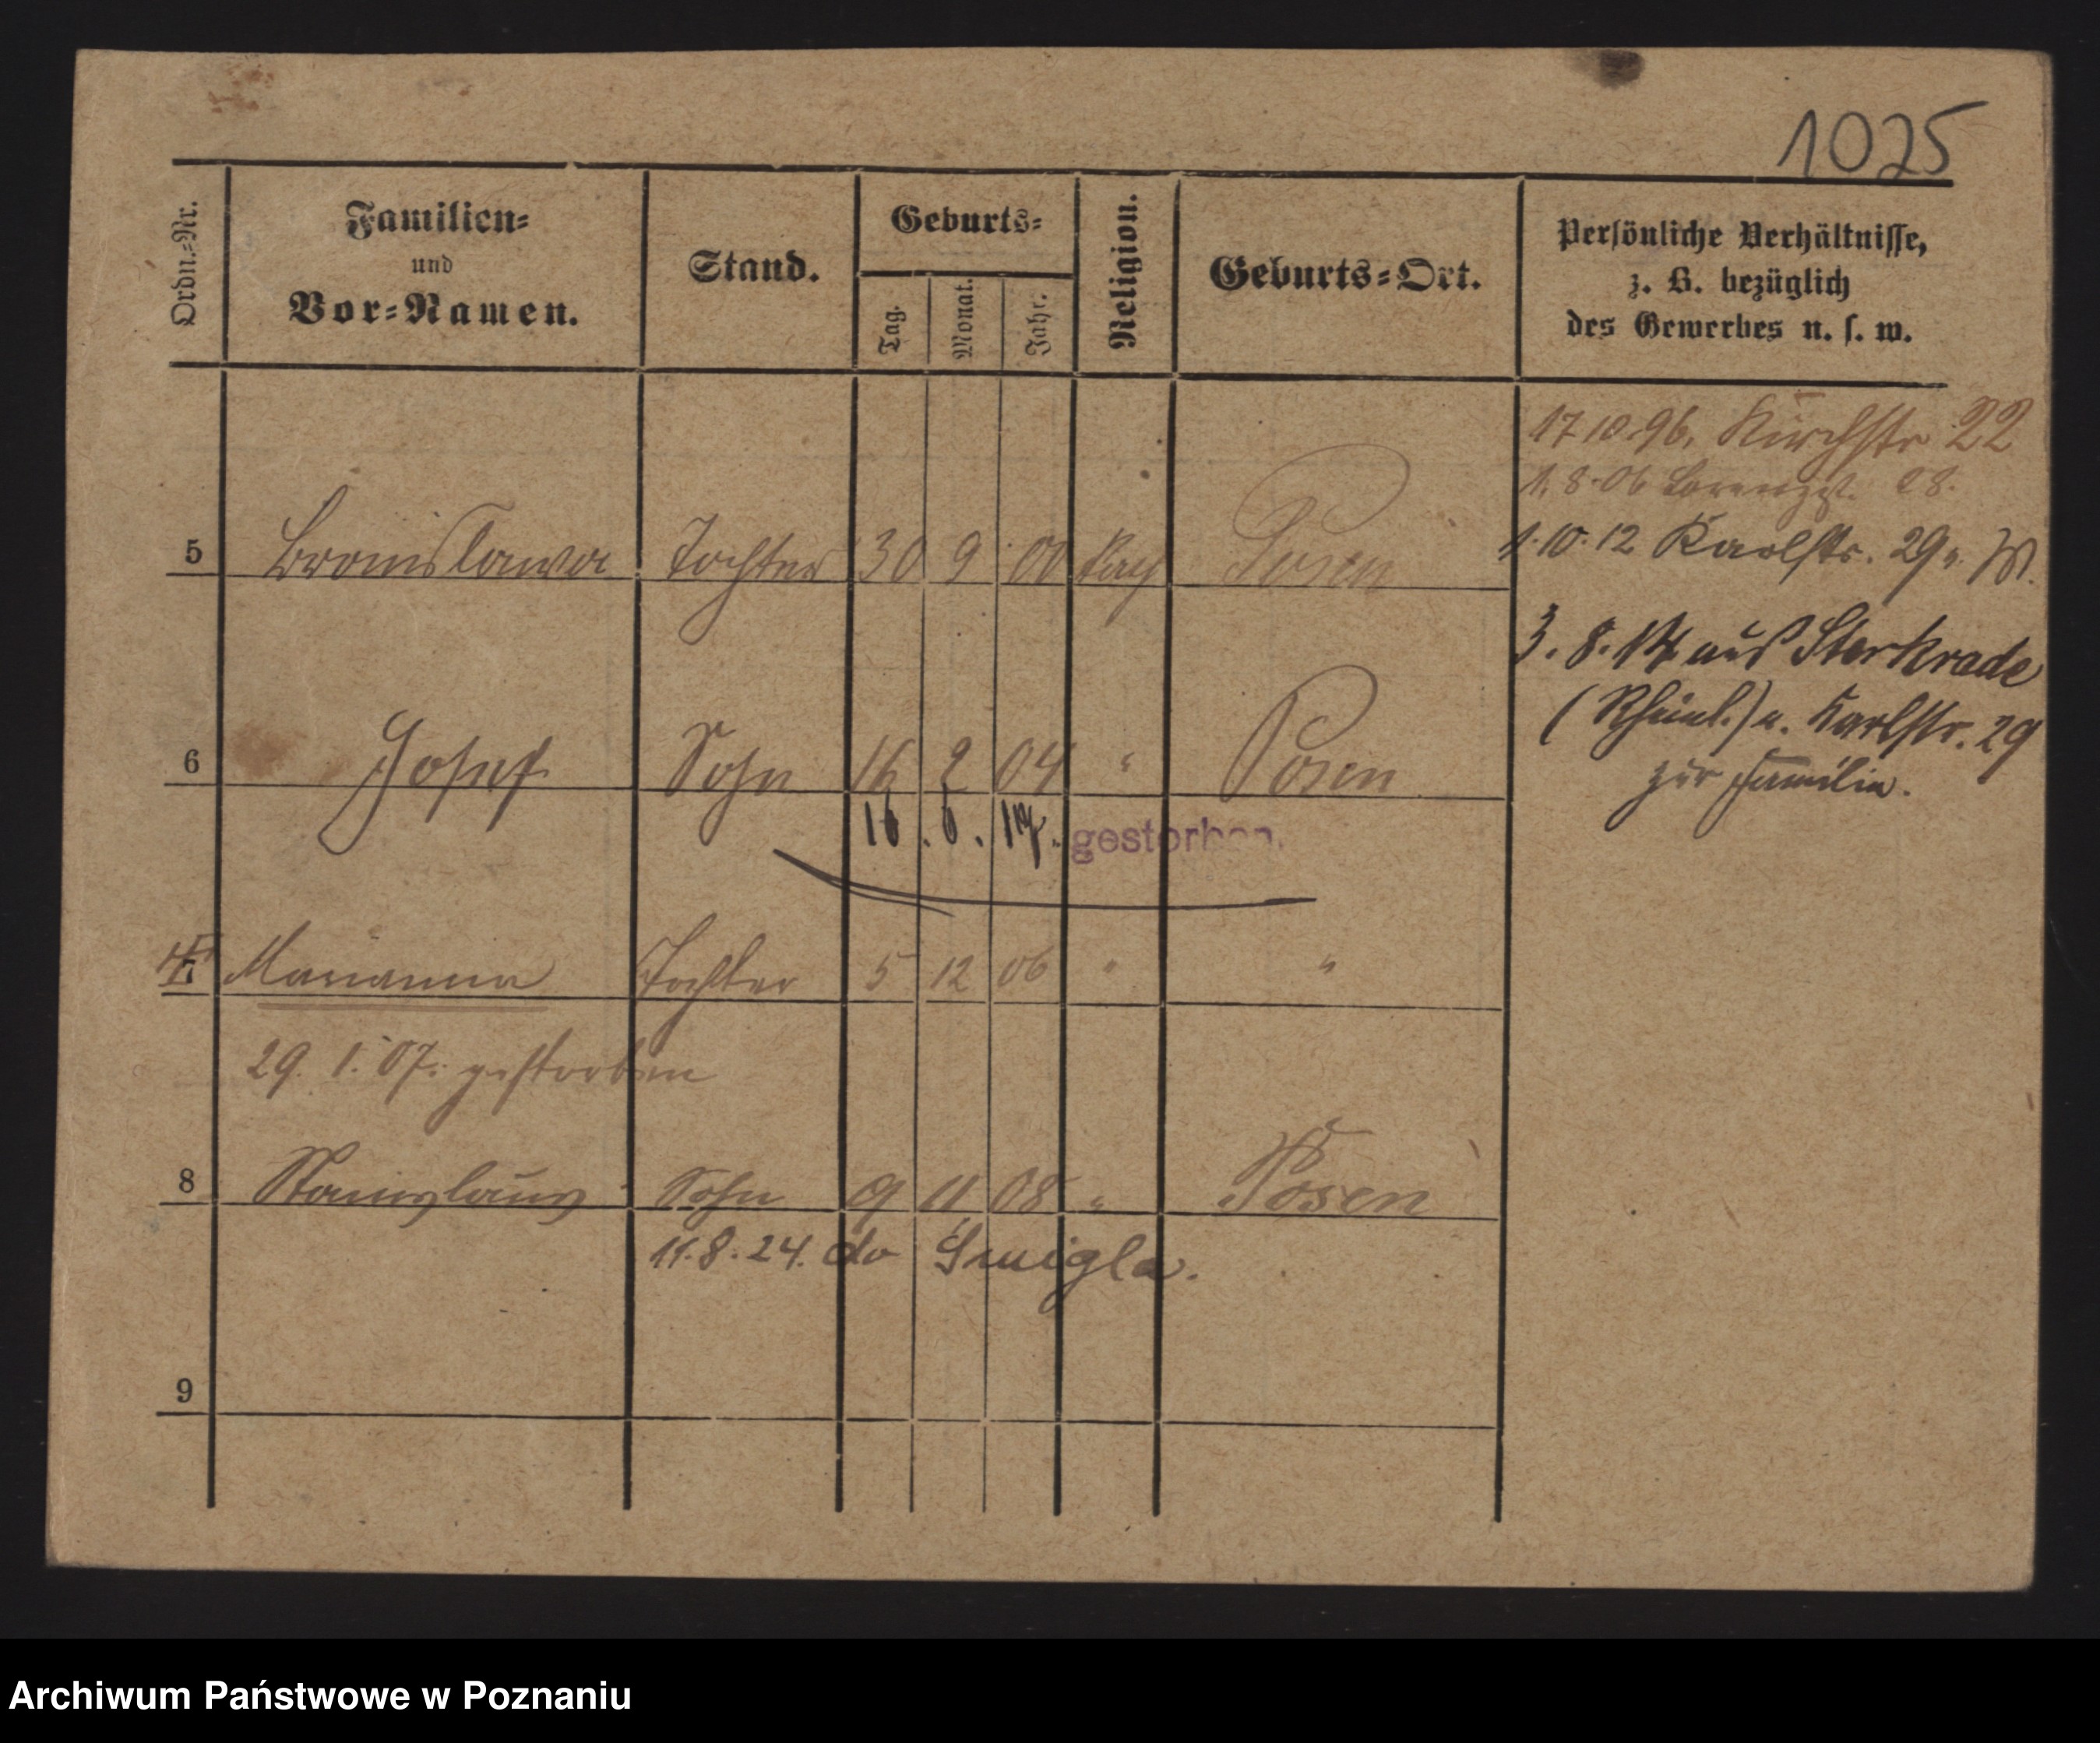 1025
Ordn.-Nr.
Familien-
und
Vor-Namen.
Stand.
Geburts-
Tag.
Monat.
Jahr.
Religion.
Geburts-Ort.
Persönliche Verhältnisse,
z. B. bezüglich
des Gewerbes u. s. w.
17 10.96. Kirchstr 22
1.8.06 Lorenzst. 28.
1.10.12 Karlstr. 29
3.8.14 aus Sterkrade
(Rheinl.) n. Karlstr. 29
zur Familie.
5 Bronislawa Tochter 30 9 00 kath Posen
6 Josef Sohn 16 2 04 " Posen
16. 6. 17. gestorben.
7 Marianna Tochter 5 12 06 " "
29. 1. 07. gestorben
8 Stanislaus Sohn 9 11 08 " Posen
11.8.24. do Śmigla.
9
Archiwum Państwowe w Poznaniu